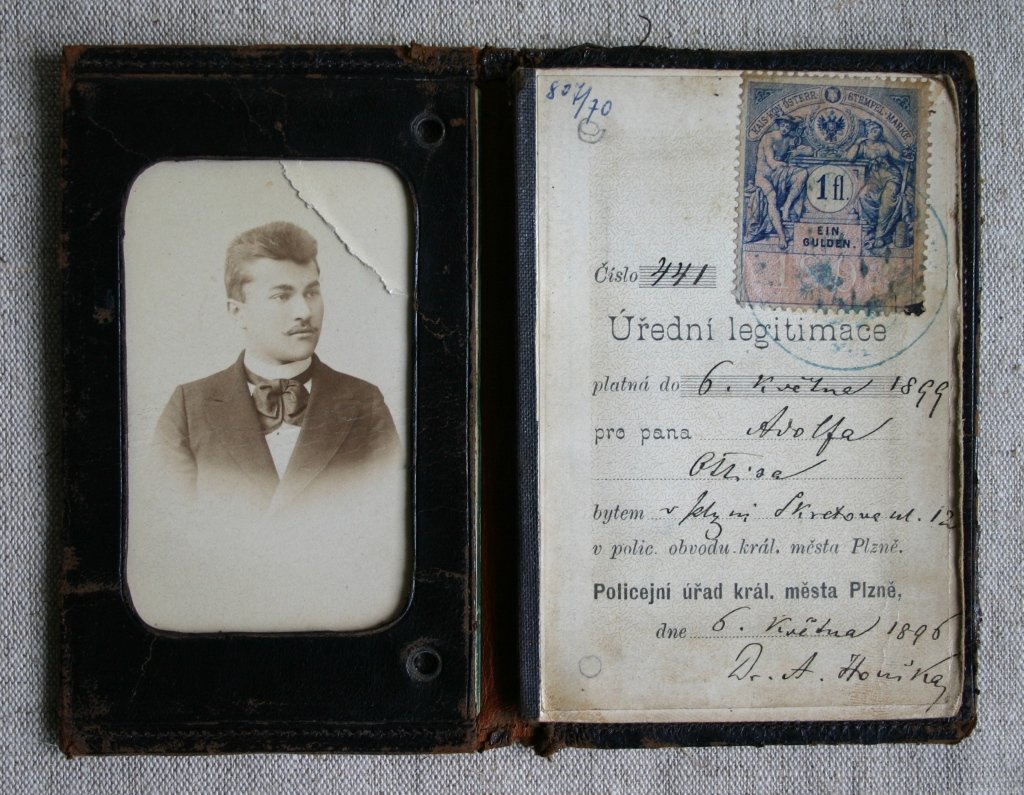 807/70
KAIS. KÖN. ÖSTERR. STEMPEL-MARKE
1 fl
EIN
GULDEN.
Číslo 441
Úřední legitimace
platná do 6. Května 1899
pro pana Adolfa
Ottisa
bytem v Plzni Škretova ul. 12
v polic. obvodu král. města Plzně.
Policejní úřad král. města Plzně,
dne 6. Května 1896
Dr. A. Houška